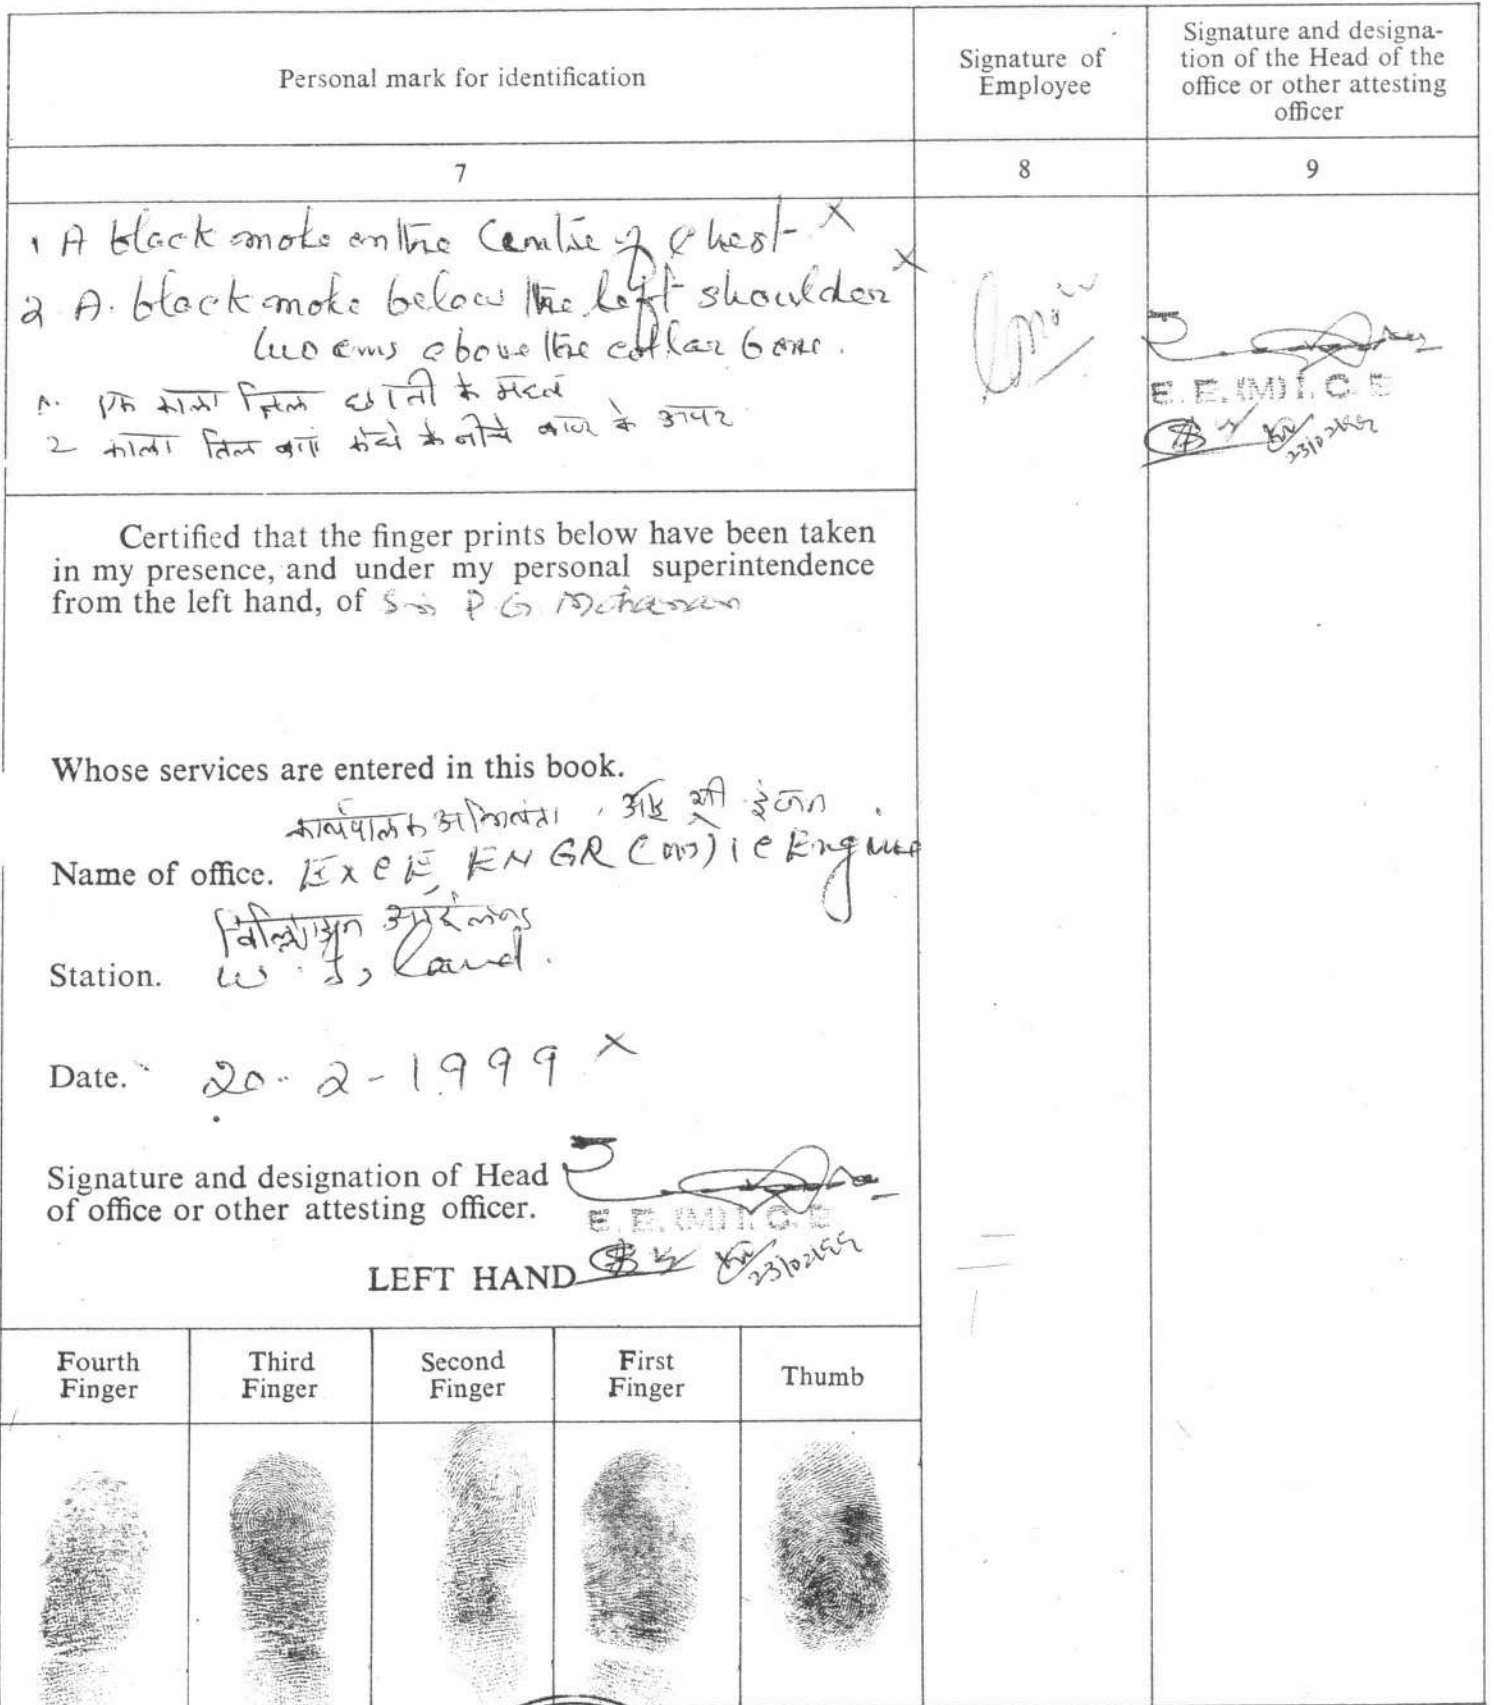 Personal mark for identification
Signature of
Employee
Signature and designa-
tion of the Head of the
office or other attesting
officer
7
8
9
1 A black mole on the Centre of Chest X
2 A. black mole below the left shoulder X
two cms above the collar bone.
1. एक काला तिल छाती के मध्य
2 काला तिल बायां कंधे के नीचे कालर के ऊपर
E. E. (M) I. C. E
Certified that the finger prints below have been taken
in my presence, and under my personal superintendence
from the left hand, of Sri P G Mohanan
Whose services are entered in this book.
कार्यपालक अभियंता, आई सी इंजन
Name of office. EXCE, ENGR (M) I C Engine
विल्लिंग्डन आईलैंड
Station. W. I, land.
Date. 20-2-1999 X
Signature and designation of Head
of office or other attesting officer.
E. E. (M) I. C. E
LEFT HAND
Fourth
Finger
Third
Finger
Second
Finger
First
Finger
Thumb